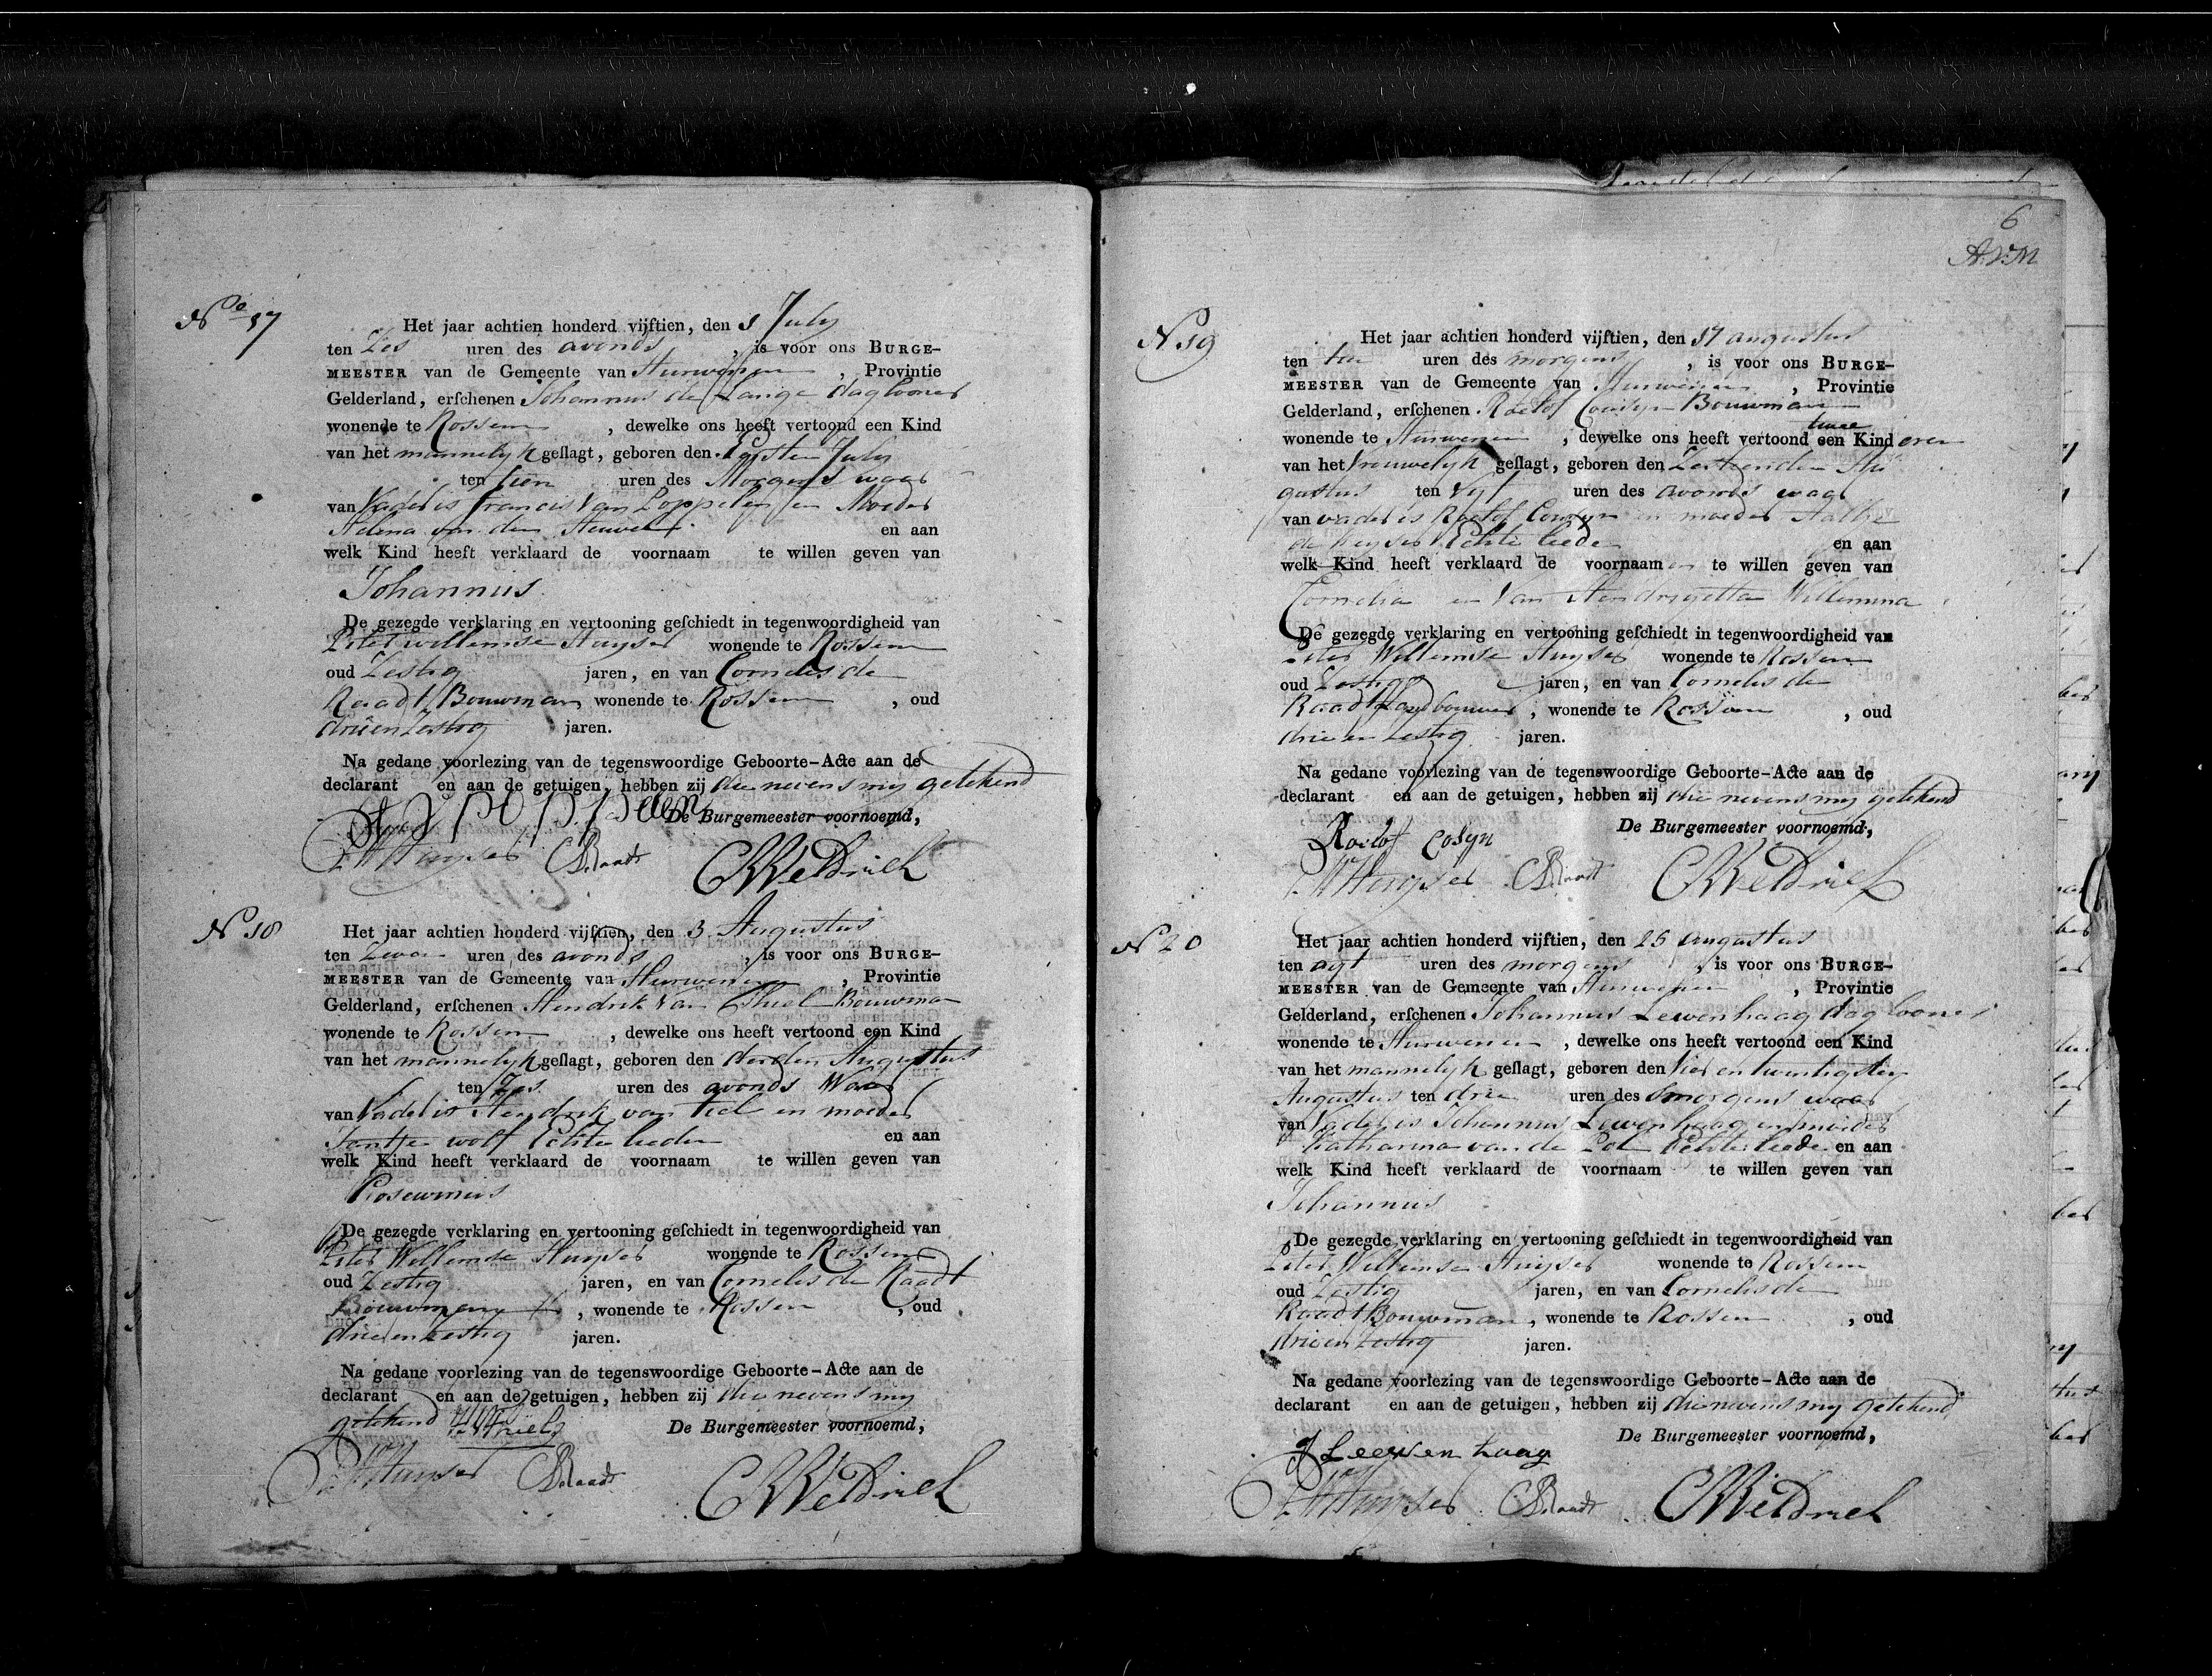 No 17
Het jaar achtien honderd vijftien, den 1 July
ten Zes uren des avonds, is voor ons BURGE-
MEESTER van de Gemeente van Hurwenen, Provintie
Gelderland, erschenen Johannus de Lange dagloner
wonende te Rossem, dewelke ons heeft vertoond een Kind
van het mannelyk geslagt, geboren den Eersten July
ten tien uren des Morgens waar
van Vader is Francis van Poppelen en Moeder
Helena van den Heuvel en aan
welk Kind heeft verklaard de voornaam te willen geven van
Johannus
De gezegde verklaring en vertooning geschiedt in tegenwoordigheid van
Peter willemse Huyser wonende te Rossem
oud Zestig jaren, en van Cornelis de
Raadt Bouwman, wonende te Rossem, oud
drie en Zestig jaren.
Na gedane voorlezing van de tegenswoordige Geboorte-Acte aan de
declarant en aan de getuigen, hebben zij die nevens my getekend
De Burgemeester voornoemd,
PW Huyser CD Raadt CW Van Driel
N 18
Het jaar achtien honderd vijftien, den 3 Augustus
ten Zeven uren des avonds, is voor ons BURGE-
MEESTER van de Gemeente van Hurwenen, Provintie
Gelderland, erschenen Hendrik van Thiel Bouwman
wonende te Rossem, dewelke ons heeft vertoond een Kind
van het mannelyk geslagt, geboren den derden Augustus
ten Zes uren des avonds Waar
van Vader is Hendrik van Tiel en moeder
Jantje wolf Echte lieden en aan
welk Kind heeft verklaard de voornaam te willen geven van
De gezegde verklaring en vertooning geschiedt in tegenwoordigheid van
Peter Willemse Huyser wonende te Rossem
oud Zestig jaren, en van Cornelis de Raadt
Bouwman, wonende te Rossem, oud
drie en Zestig jaren.
Na gedane voorlezing van de tegenswoordige Geboorte-Acte aan de
declarant en aan de getuigen, hebben zij die nevens my
getekend
De Burgemeester voornoemd,
PW Huyser CD Raadt
6
A.V.M
N 19
Het jaar achtien honderd vijftien, den 17 augustus
ten tien uren des morgens, is voor ons BURGE-
MEESTER van de Gemeente van Hurwenen, Provintie
Gelderland, erschenen Roelof Cosyn Bouwman
twee
wonende te Hurwenen, dewelke ons heeft vertoond een Kind eren
van het Vrouwelyk geslagt, geboren den Zestienden Au
gustus ten vyf uren des avonds waar
van vader is Roelof Cosyn en moeder Aaltje
de Keyser Echte lieden en aan
welk Kind heeft verklaard de voornaam en te willen geven van
Cornelia en Van Hendrigetta Willemina
De gezegde verklaring en vertooning geschiedt in tegenwoordigheid van
Peter Willemse Huyser wonende te Rossem
oud Zestig jaren, en van Cornelis de
Raadt Landbouwer, wonende te Rossem, oud
drie en Zestig jaren.
Na gedane voorlezing van de tegenswoordige Geboorte-Acte aan de
declarant en aan de getuigen, hebben zij die nevens my getekend
De Burgemeester voornoemd,
Roelof Cosyn
PW Huyser CD Raadt
N 20
Het jaar achtien honderd vijftien, den 25 augustus
ten agt uren des morgens, is voor ons BURGE-
MEESTER van de Gemeente van Hurwenen, Provintie
Gelderland, erschenen Johannus Lewenhaag dagloner
wonende te Hurwenen, dewelke ons heeft vertoond een Kind
van het mannelyk geslagt, geboren den Vier en twentigsten
Augustus ten drie uren des Smorgens waar
van Vader is Johannus Lewenhaag en moeder
Catharina van de Pol Echte lieden en aan
welk Kind heeft verklaard de voornaam te willen geven van
Johannus
De gezegde verklaring en vertooning geschiedt in tegenwoordigheid van
Peter Willemse Huyser wonende te Rossem
oud Zestig jaren, en van Cornelis de
Raadt Bouwman, wonende te Rossem, oud
drie en Zestig jaren.
Na gedane voorlezing van de tegenswoordige Geboorte-Acte aan de
declarant en aan de getuigen, hebben zij die nevens my getekend
De Burgemeester voornoemd,
J Leewen haag
PW Huyser CD Raadt